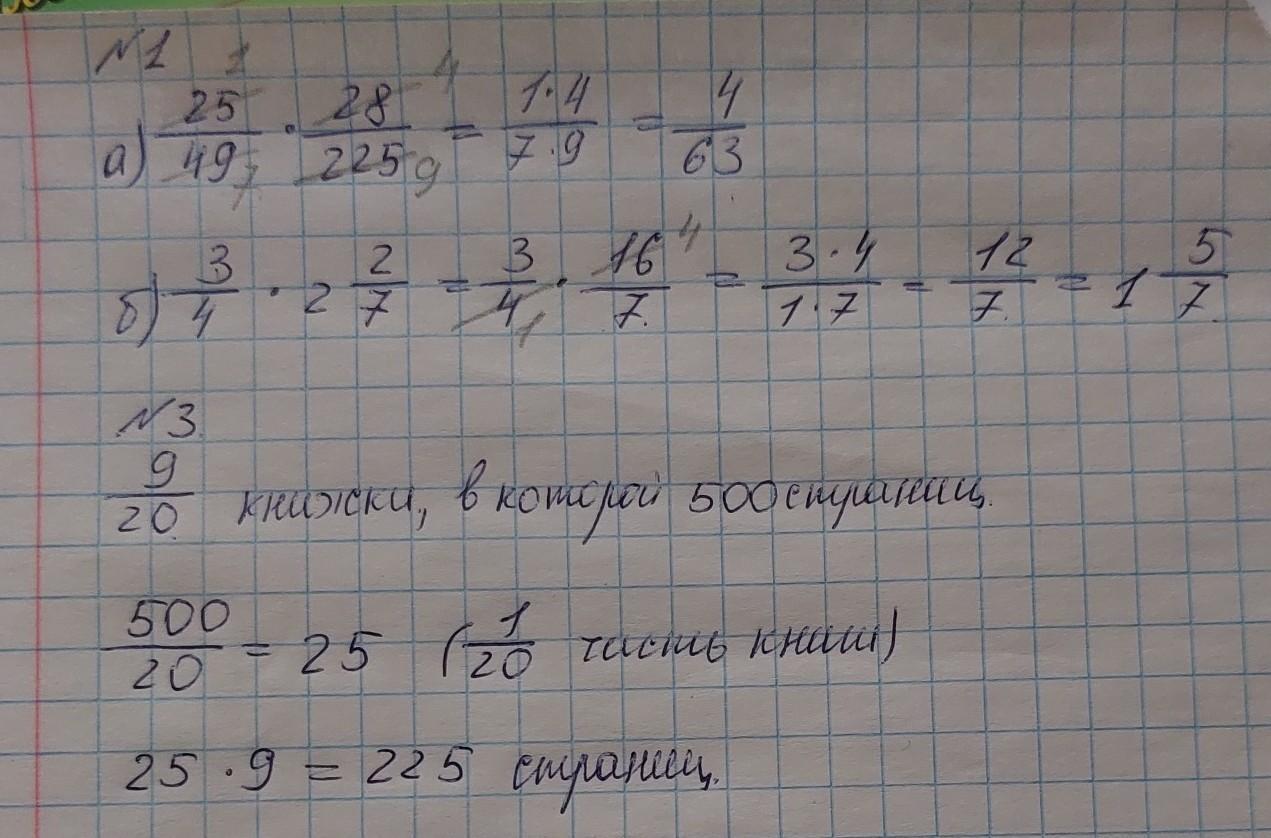 №1
а) 25/49 · 28/225 = 1·4/7·9 = 4/63
1 7 4 9
б) 3/4 · 2 2/7 = 3/4 · 16/7 = 3·4/1·7 = 12/7 = 1 5/7
1 4
№3.
9/20 книжки, в которой 500 страниц.
500/20 = 25 (1/20 часть книги)
25 · 9 = 225 страниц.